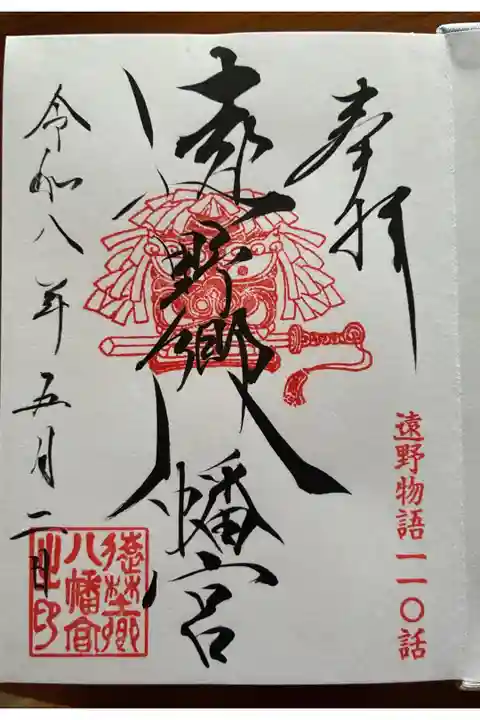 奉拝
遠野物語一一〇話
遠野郷八幡宮
令和八年五月二日
遠野郷
八幡宮
之印